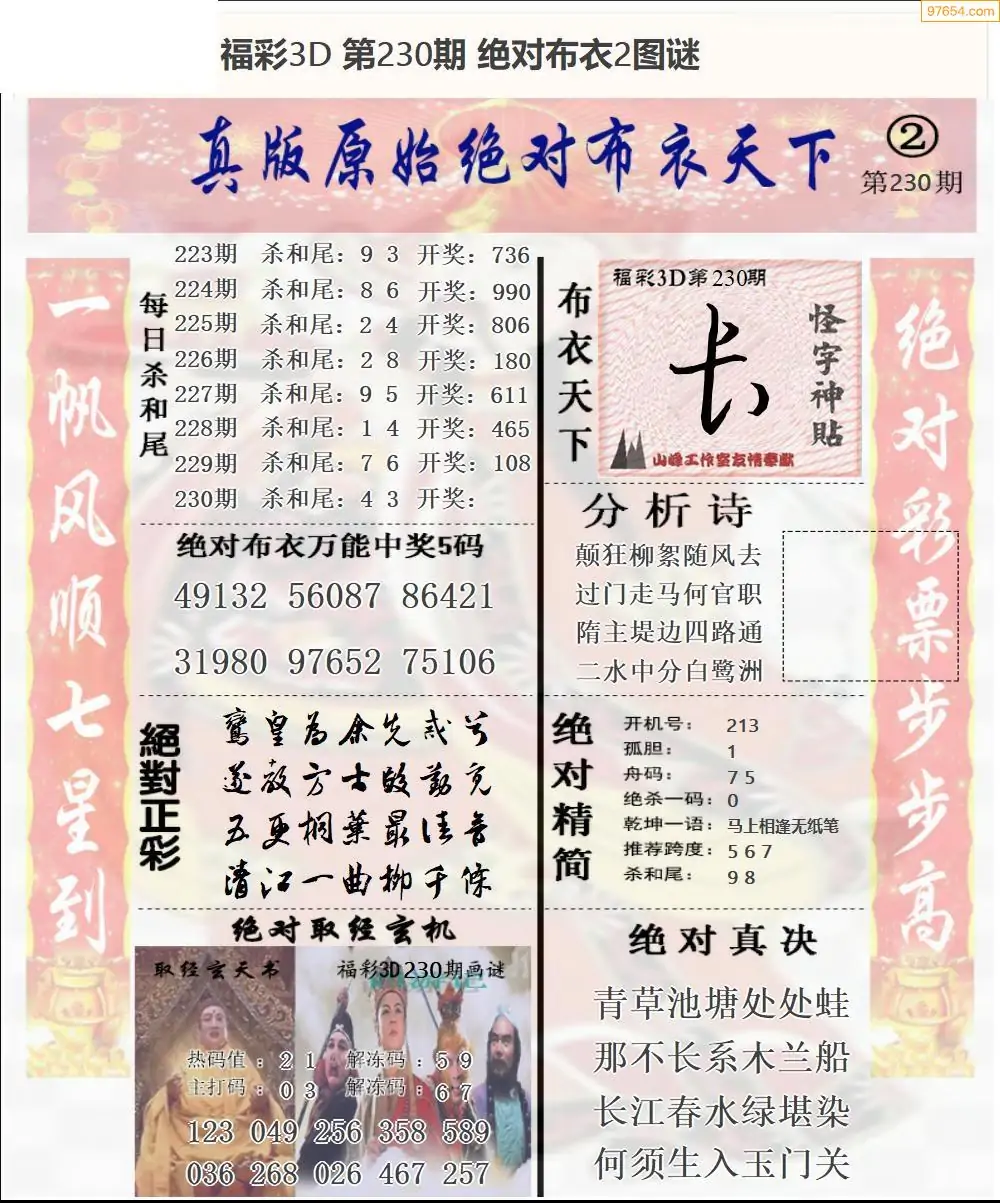 97654.com
福彩3D 第230期 绝对布衣2图谜
真版原始绝对布衣天下
②
第230期
一帆风顺七星到
每日杀和尾
223期 杀和尾：9 3 开奖：736
224期 杀和尾：8 6 开奖：990
225期 杀和尾：2 4 开奖：806
226期 杀和尾：2 8 开奖：180
227期 杀和尾：9 5 开奖：611
228期 杀和尾：1 4 开奖：465
229期 杀和尾：7 6 开奖：108
230期 杀和尾：4 3 开奖：
绝对布衣万能中奖5码
49132 56087 86421
31980 97652 75106
絕對正彩
鸞皇為余先戒兮
遂教方士殷勤覓
五更桐葉最佳音
清江一曲柳千條
绝对取经玄机
取经玄天书
福彩3D230期画谜
热码值：2 1 解冻码：5 9
主打码：0 3 解冻码：6 7
123 049 256 358 589
036 268 026 467 257
布衣天下
福彩3D第230期
卡
怪字神贴
山峰工作室友情奉献
分析诗
颠狂柳絮随风去
过门走马何官职
隋主堤边四路通
二水中分白鹭洲
绝对精简
开机号： 213
孤胆： 1
舟码： 7 5
绝杀一码：0
乾坤一语：马上相逢无纸笔
推荐跨度：5 6 7
杀和尾： 9 8
绝对真决
青草池塘处处蛙
那不长系木兰船
长江春水绿堪染
何须生入玉门关
绝对彩票步步高